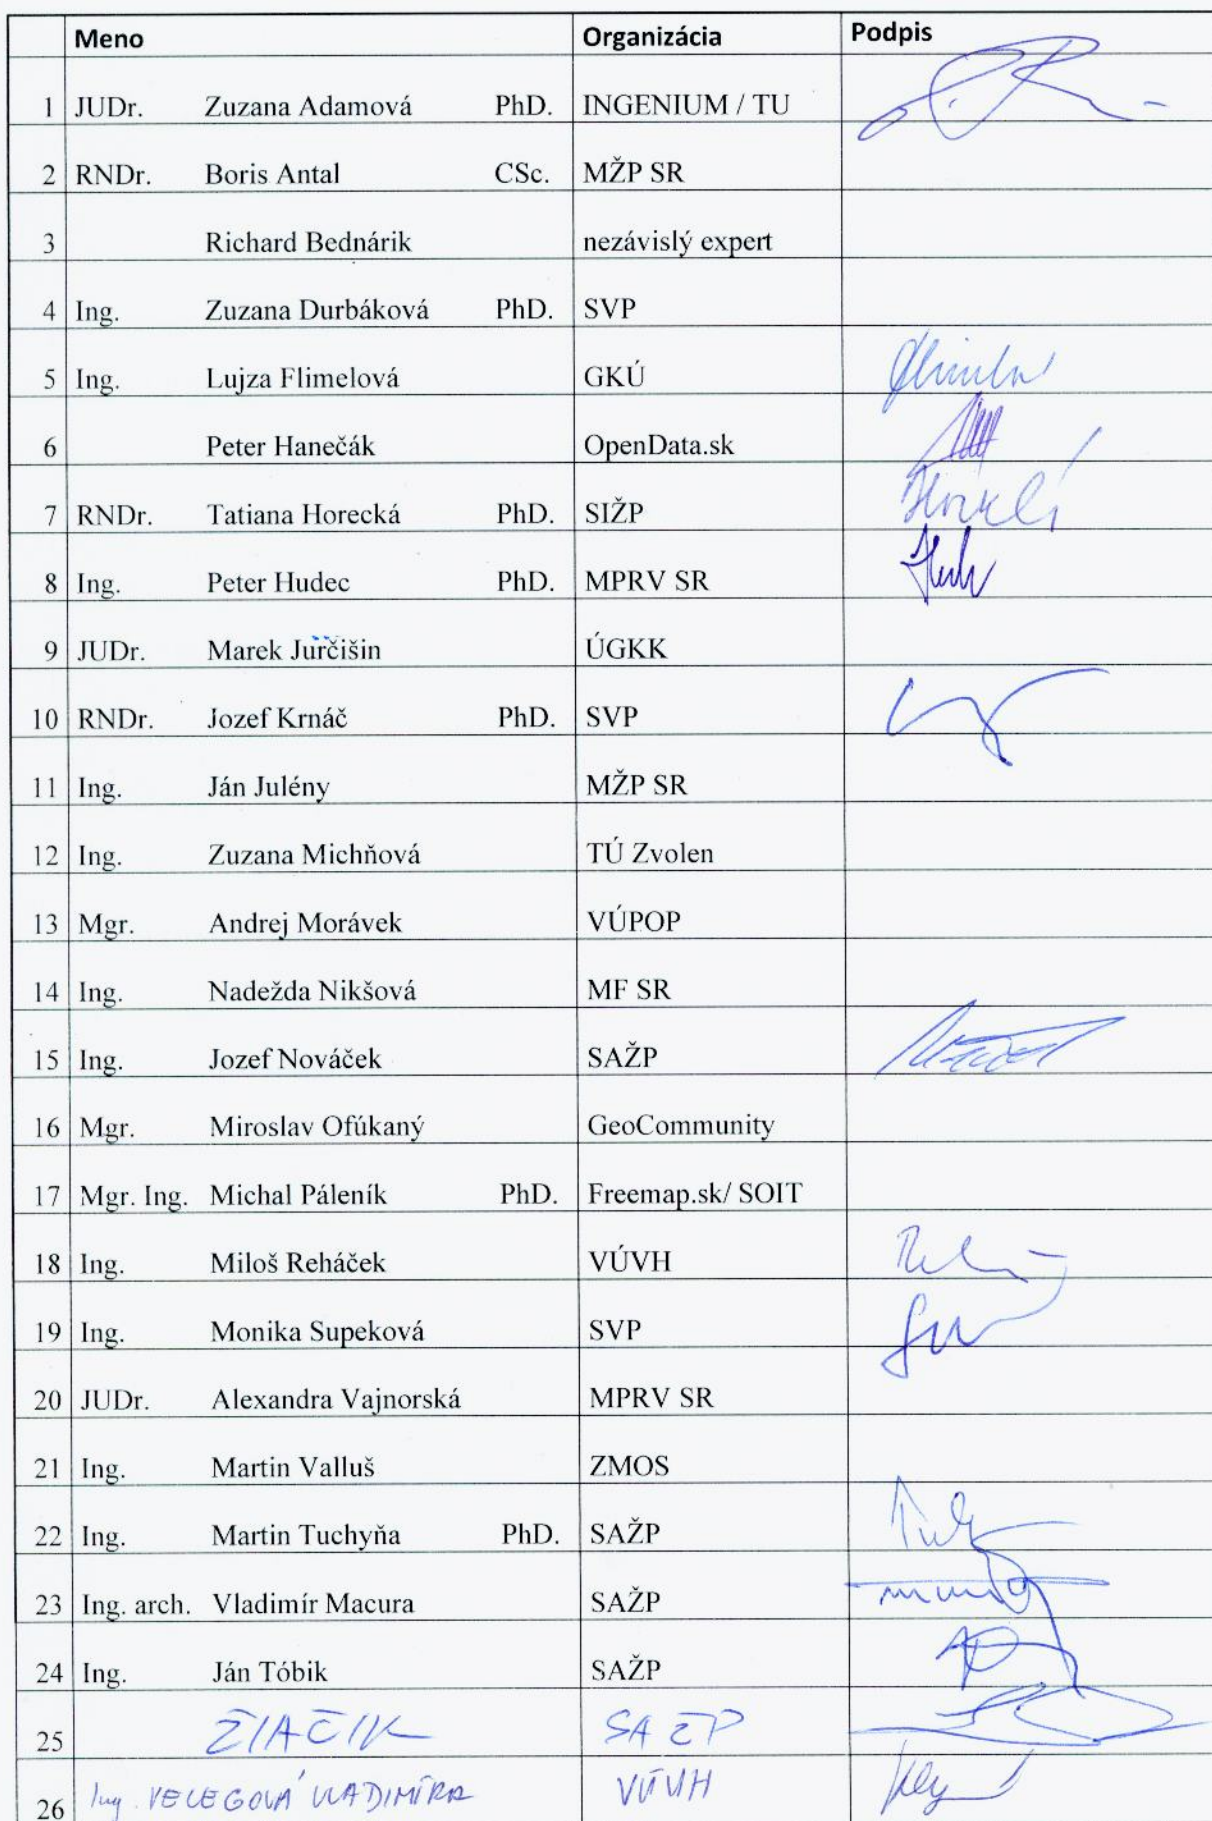 Meno Organizácia Podpis
1 JUDr. Zuzana Adamová PhD. INGENIUM / TU
2 RNDr. Boris Antal CSc. MŽP SR
3 Richard Bednárik nezávislý expert
4 Ing. Zuzana Durbáková PhD. SVP
5 Ing. Lujza Flimelová GKÚ
6 Peter Hanečák OpenData.sk
7 RNDr. Tatiana Horecká PhD. SIŽP
8 Ing. Peter Hudec PhD. MPRV SR
9 JUDr. Marek Jurčišin ÚGKK
10 RNDr. Jozef Krnáč PhD. SVP
11 Ing. Ján Julény MŽP SR
12 Ing. Zuzana Michňová TÚ Zvolen
13 Mgr. Andrej Morávek VÚPOP
14 Ing. Nadežda Nikšová MF SR
15 Ing. Jozef Nováček SAŽP
16 Mgr. Miroslav Ofúkaný GeoCommunity
17 Mgr. Ing. Michal Páleník PhD. Freemap.sk/ SOIT
18 Ing. Miloš Reháček VÚVH
19 Ing. Monika Supeková SVP
20 JUDr. Alexandra Vajnorská MPRV SR
21 Ing. Martin Valluš ZMOS
22 Ing. Martin Tuchyňa PhD. SAŽP
23 Ing. arch. Vladimír Macura SAŽP
24 Ing. Ján Tóbik SAŽP
25 ŽIAČIK SAŽP
26 Ing. VELEGOVÁ VLADIMÍRA VÚVH